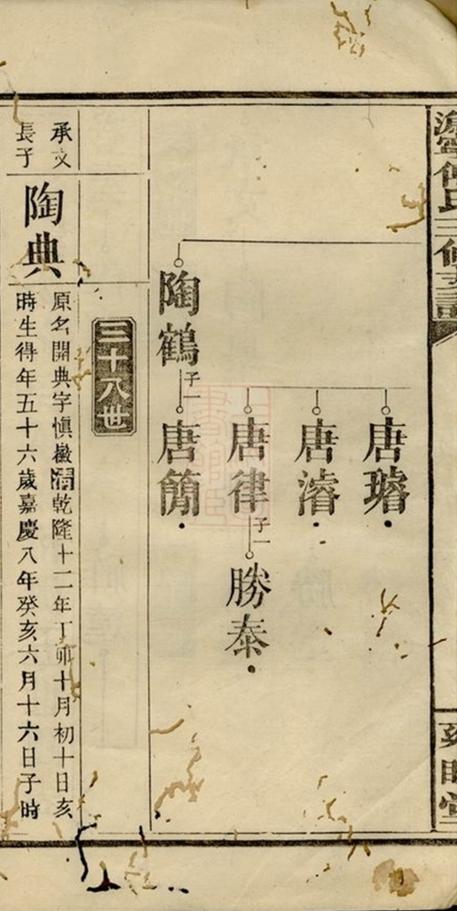 何氏三修支譜
唐璿
唐濬
唐律 子一
勝泰
陶鶴 子一
唐簡
三十八世
承文長子
陶典
原名開典字愼徽清乾隆十二年丁卯十月初十日亥
時生得年五十六歲嘉慶八年癸亥六月十六日子時